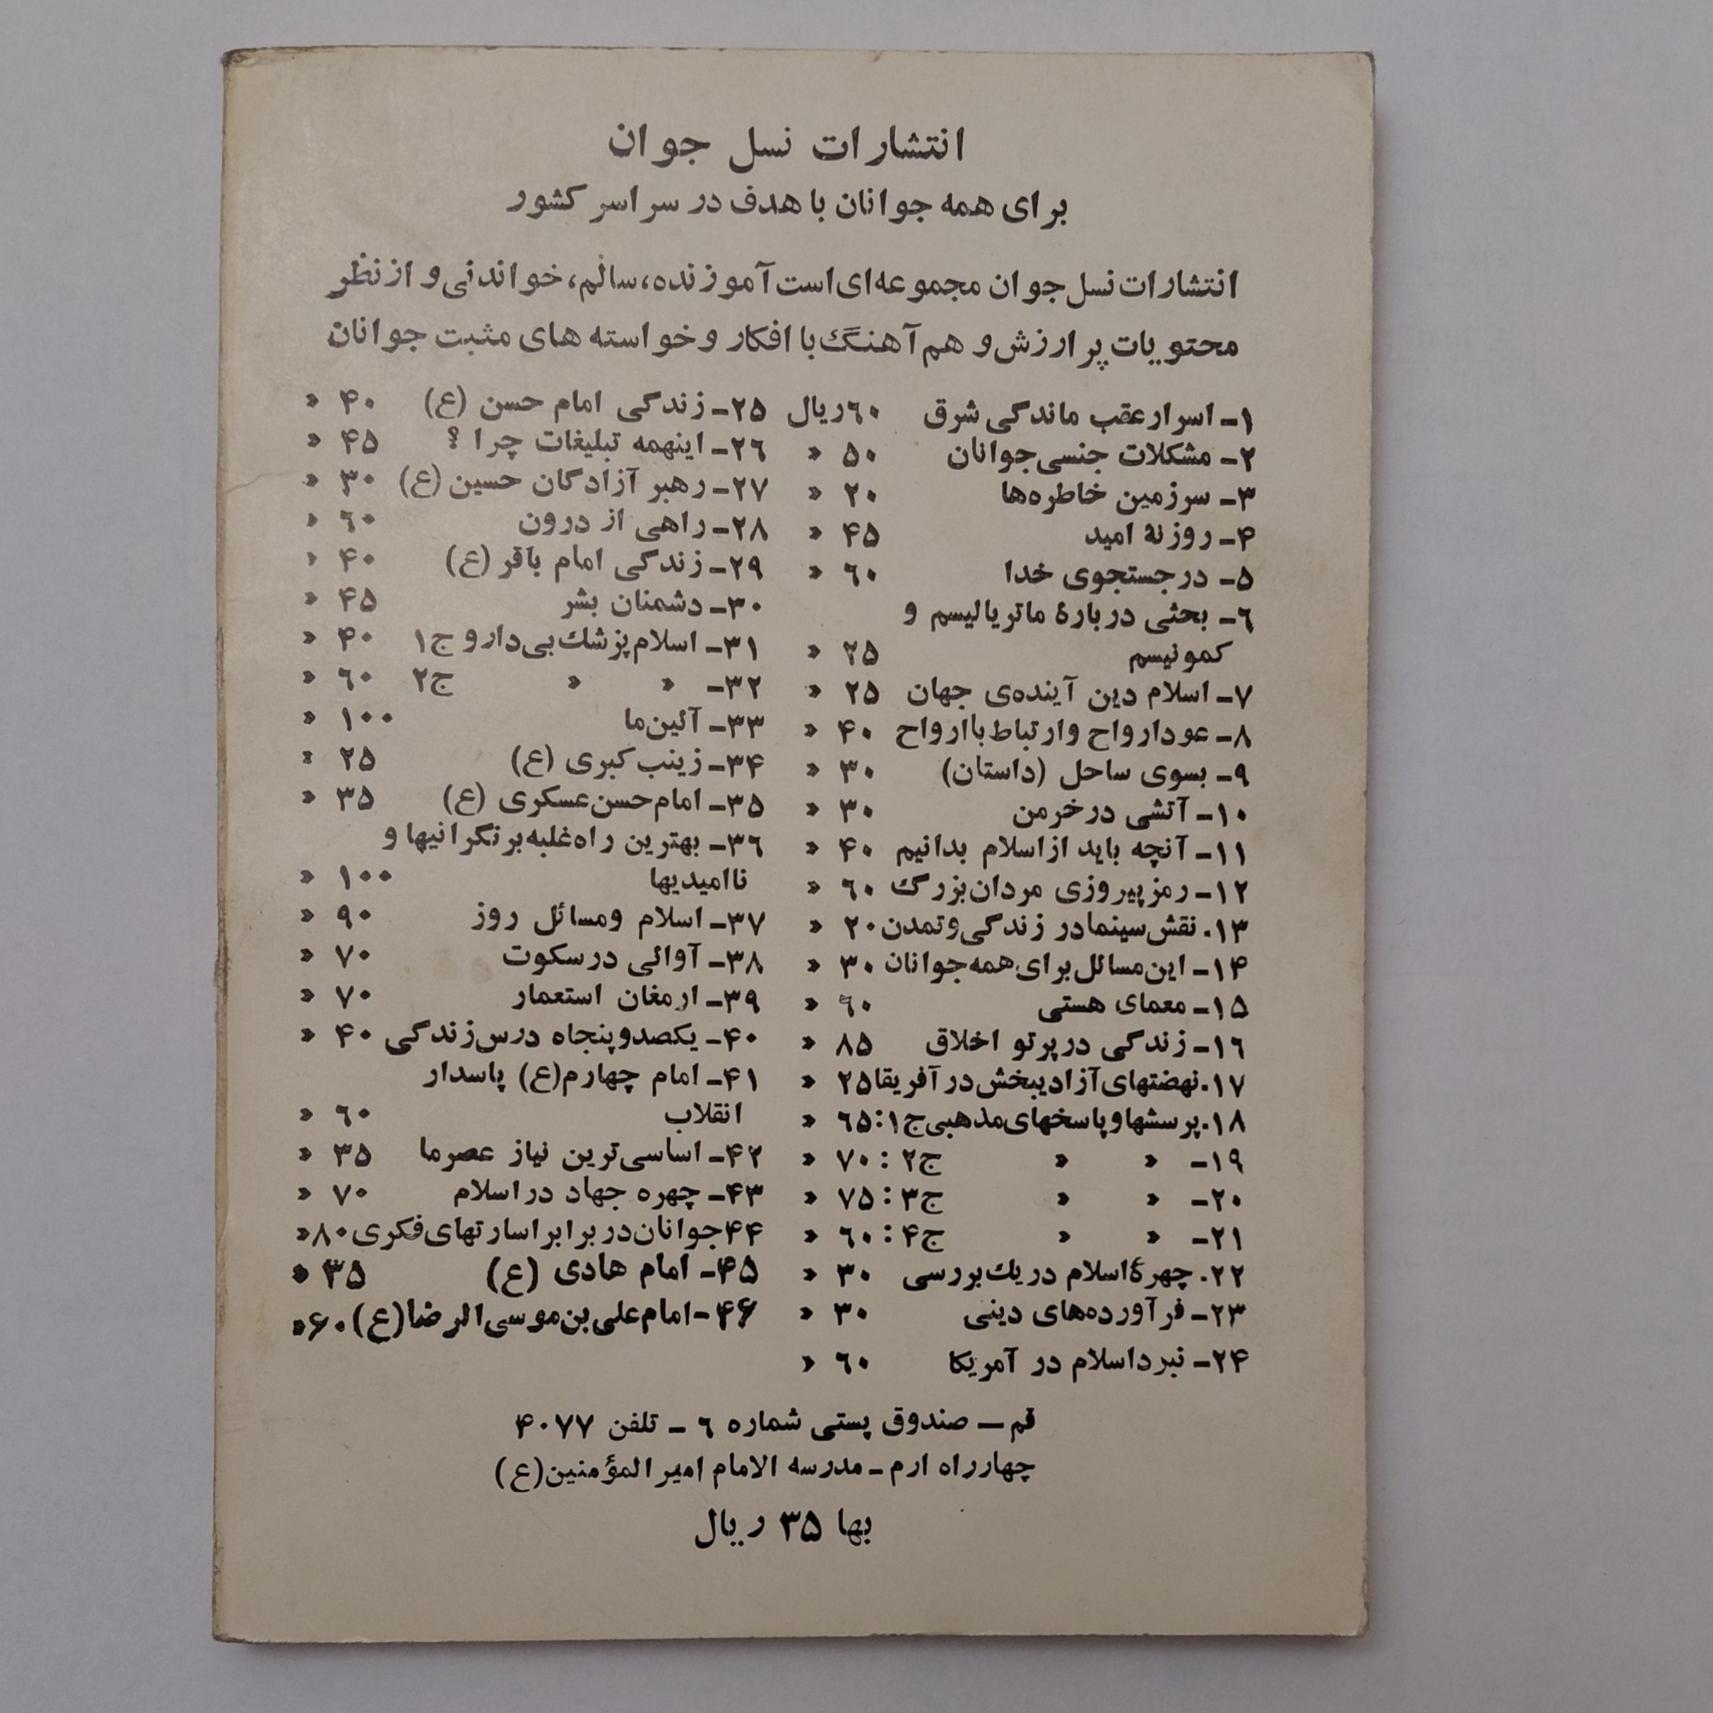 انتشارات نسل جوان
برای همه جوانان با هدف در سراسر کشور
انتشارات نسل جوان مجموعه‌ای است آموزنده، سالم، خواندنی و از نظر
محتویات پر ارزش و هم آهنگ با افکار و خواسته های مثبت جوانان
۱ـ اسرار عقب ماندگی شرق ۶۰ ریال
۲ـ مشکلات جنسی جوانان ۵۰ «
۳ـ سرزمین خاطره‌ها ۲۰ «
۴ـ روزنهٔ امید ۴۵ «
۵ـ در جستجوی خدا ۶۰ «
۶ـ بحثی دربارهٔ ماتریالیسم و
کمونیسم ۲۵ «
۷ـ اسلام دین آینده‌ی جهان ۲۵ «
۸ـ عود ارواح و ارتباط با ارواح ۴۰ «
۹ـ بسوی ساحل (داستان) ۳۰ «
۱۰ـ آتشی در خرمن ۳۰ «
۱۱ـ آنچه باید از اسلام بدانیم ۴۰ «
۱۲ـ رمز پیروزی مردان بزرگ ۶۰ «
۱۳. نقش سینما در زندگی و تمدن ۲۰ «
۱۴ـ این مسائل برای همه جوانان ۳۰ «
۱۵ـ معمای هستی «
۱۶ـ زندگی در پرتو اخلاق ۸۵ «
۱۷. نهضتهای آزادیبخش در آفریقا ۲۵ «
۱۸. پرسشها و پاسخهای مذهبی ج۱: ۶۵ «
۱۹ـ « « ج۲: ۷۰ «
۲۰ـ « « ج۳: ۷۵ «
۲۱ـ « « ج۴: ۶۰ «
۲۲. چهرهٔ اسلام در یک بررسی ۳۰ «
۲۳ـ فرآورده‌های دینی ۳۰ «
۲۴ـ نبرد اسلام در آمریکا ۶۰ «
۲۵ـ زندگی امام حسن (ع) ۴۰ «
۲۶ـ اینهمه تبلیغات چرا ؟ ۴۵ «
۲۷ـ رهبر آزادگان حسین (ع) ۳۰ «
۲۸ـ راهی از درون ۶۰ «
۲۹ـ زندگی امام باقر (ع) ۴۰ «
۳۰ـ دشمنان بشر ۴۵ «
۳۱ـ اسلام پزشک بی‌دارو ج۱ ۴۰ «
۳۲ـ « « ج۲ ۶۰ «
۳۳ـ آئین ما ۱۰۰ «
۳۴ـ زینب کبری (ع) ۲۵ «
۳۵ـ امام حسن عسکری (ع) ۳۵ «
۳۶ـ بهترین راه غلبه بر نگرانیها و
ناامیدیها ۱۰۰ «
۳۷ـ اسلام و مسائل روز ۹۰ «
۳۸ـ آوائی در سکوت ۷۰ «
۳۹ـ ارمغان استعمار ۷۰ «
۴۰ـ یکصد و پنجاه درس زندگی ۴۰ «
۴۱ـ امام چهارم (ع) پاسدار
انقلاب ۶۰ «
۴۲ـ اساسی ترین نیاز عصر ما ۳۵ «
۴۳ـ چهره جهاد در اسلام ۷۰ «
۴۴ جوانان در برابر اسارتهای فکری ۸۰ «
۴۵ـ امام هادی (ع) ۳۵ «
۴۶ـ امام علی بن موسی الرضا (ع) ۶۰ «
قم ـ صندوق پستی شماره ۶ ـ تلفن ۴۰۷۷
چهارراه ارم ـ مدرسه الامام امیرالمؤمنین (ع)
بها ۳۵ ریال